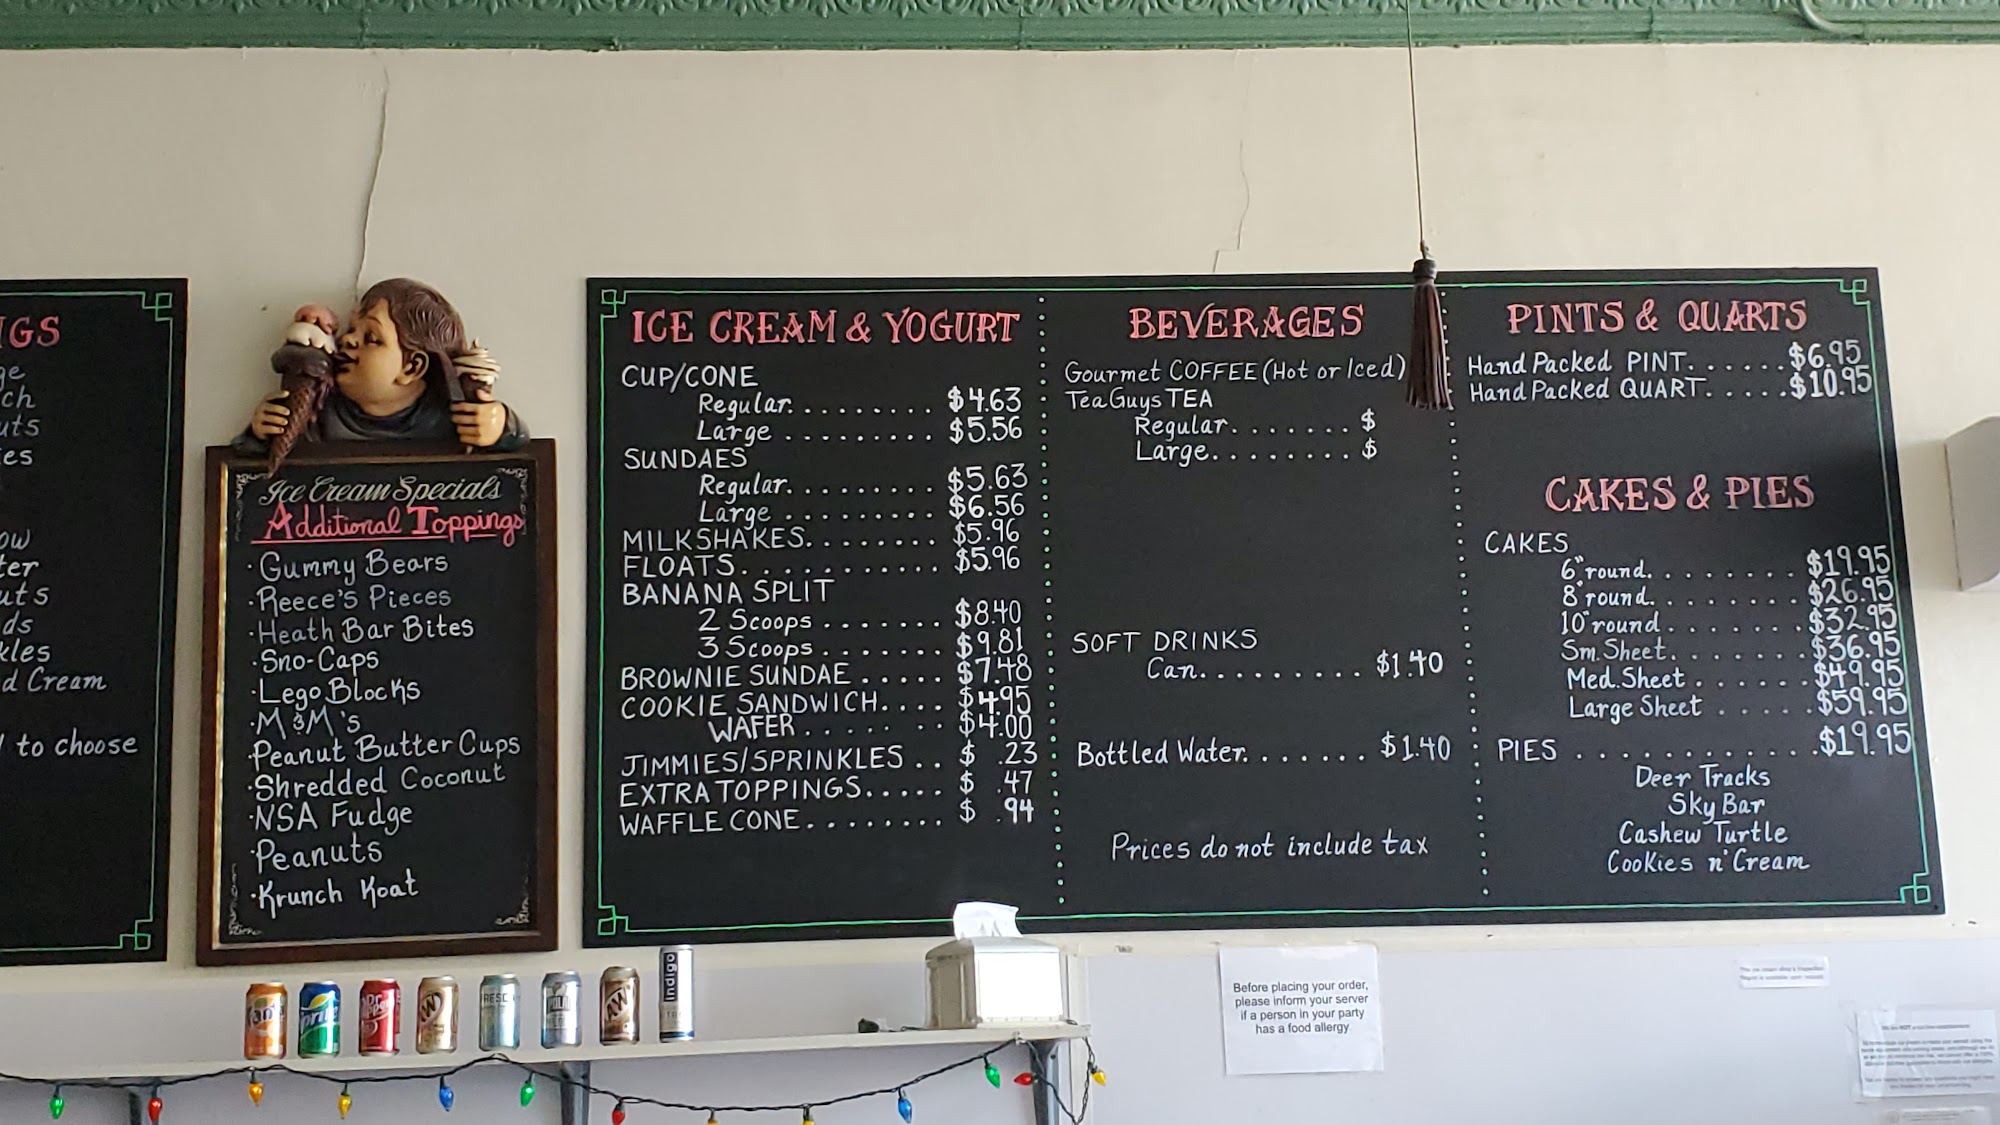 GS
ge
ch
uts
es
ow
ter
uts
ds
kles
d Cream
to choose
Ice Cream Specials
Additional Toppings
· Gummy Bears
· Reece's Pieces
· Heath Bar Bites
· Sno-Caps
· Lego Blocks
· M&M's
· Peanut Butter Cups
· Shredded Coconut
· NSA Fudge
· Peanuts
· Krunch Koat
ICE CREAM & YOGURT
CUP/CONE
Regular. . . . . . . . . $4.63
Large . . . . . . . . . $5.56
SUNDAES
Regular. . . . . . . . . $5.63
Large . . . . . . . . . $6.56
MILKSHAKES. . . . . . . . $5.96
FLOATS. . . . . . . . . . . $5.96
BANANA SPLIT
2 Scoops . . . . . . . $8.40
3 Scoops . . . . . . . $9.81
BROWNIE SUNDAE . . . . . $7.48
COOKIE SANDWICH. . . . $4.95
WAFER . . . . . . . $4.00
JIMMIES/SPRINKLES . . $ .23
EXTRA TOPPINGS. . . . . $ .47
WAFFLE CONE. . . . . . . . $ .94
BEVERAGES
Gourmet COFFEE (Hot or Iced)
Tea Guys TEA
Regular. . . . . . . $
Large. . . . . . . . $
SOFT DRINKS
Can. . . . . . . . . $1.40
Bottled Water. . . . . . . $1.40
Prices do not include tax
PINTS & QUARTS
Hand Packed PINT. . . . . . $6.95
Hand Packed QUART. . . . . $10.95
CAKES & PIES
CAKES
6" round. . . . . . . . $19.95
8" round. . . . . . . . $26.95
10" round. . . . . . . $32.95
Sm. Sheet. . . . . . . $36.95
Med. Sheet . . . . . . $49.95
Large Sheet . . . . . $59.95
PIES . . . . . . . . . . . . $19.95
Deer Tracks
Sky Bar
Cashew Turtle
Cookies n' Cream
Fanta
Sprite
Dr Pepper
A&W
FRESCA
POLAR
A&W
Indigo
Before placing your order,
please inform your server
if a person in your party
has a food allergy.